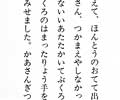 えて、ほんとうのおてて出
さん、つかまえやしなかっ
ないいあたたかいてぶくろ
くろのはまったりょう手を
みせました。かあさんぎつ